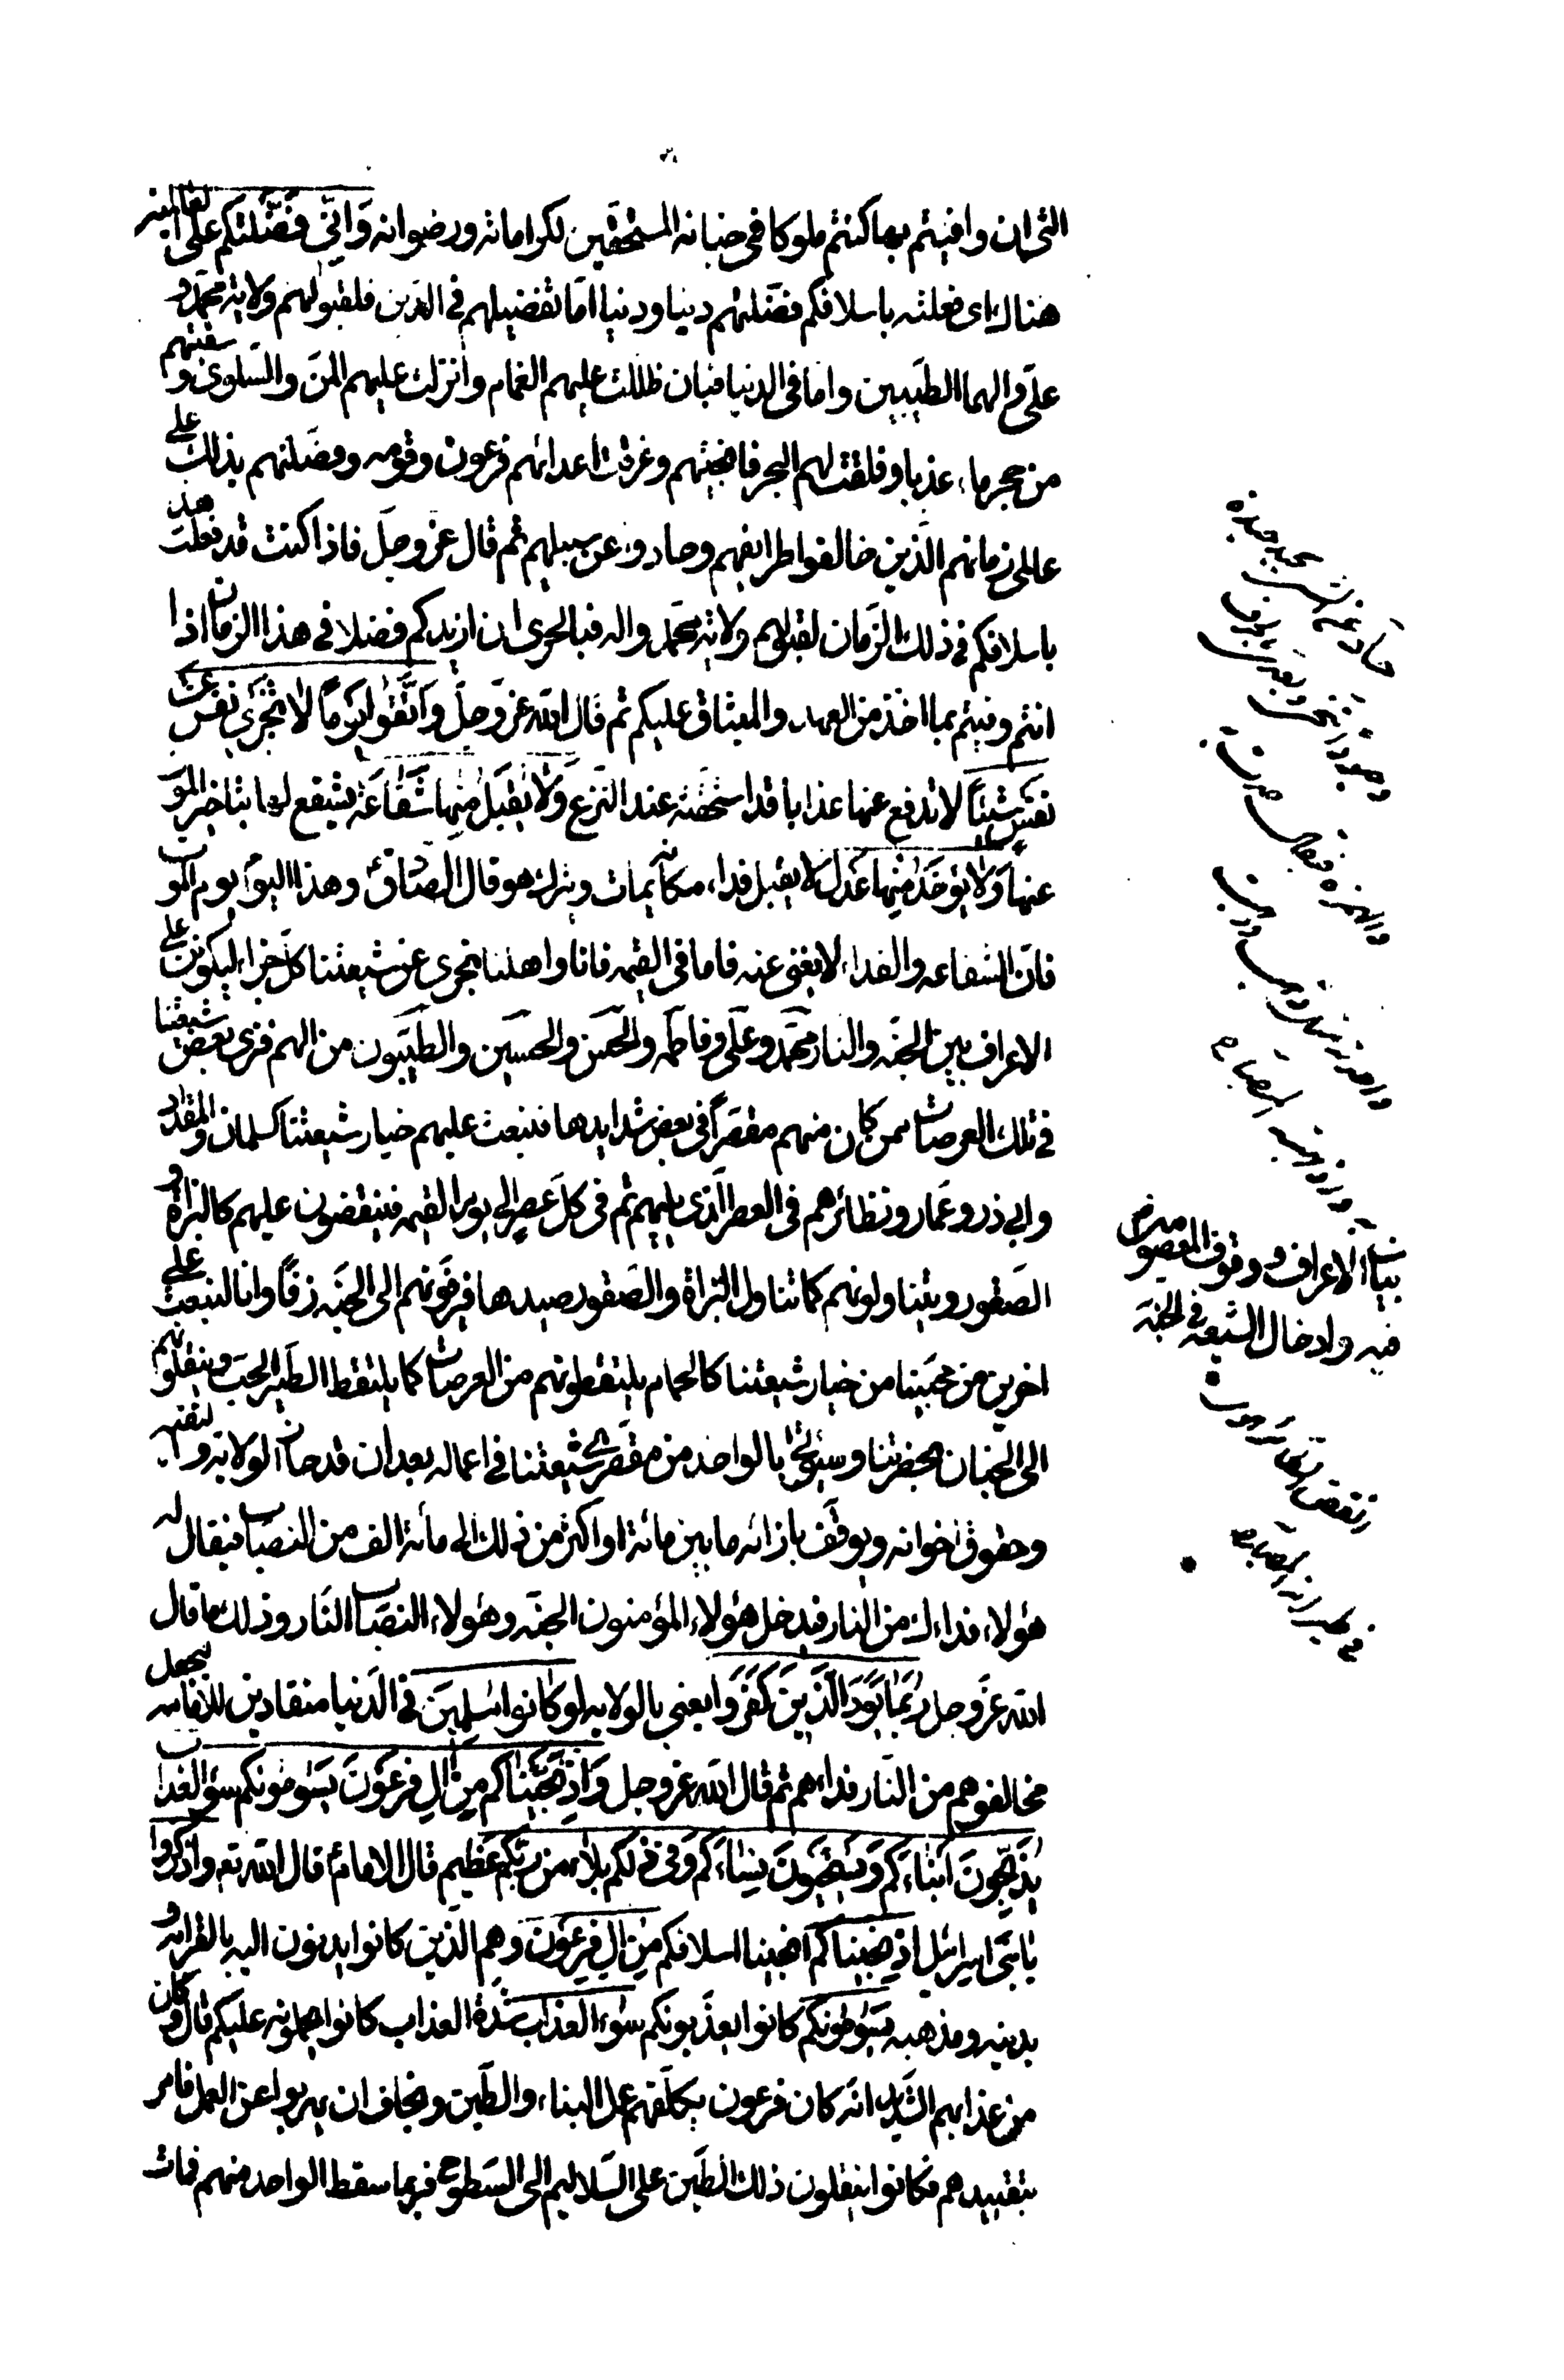 التى ان وافيتم بها كنتم ملوكا فى جنانه المستحقين لكراماته ورضوانه وَاَنّى فَضَّلتكم عَلى العالمين
هناك اى فعلته باسلافكم فضّلتهم دينا ودنيا امّا تفضيلهم فى الدّين فلقبولهم ولاية محمّد و
علىّ والهما الطيّبين واما فى الدنيا فبان ظللت عليهم الغمام وانزلت عليهم المنّ والسّلوى وسقيتهم
من حجر ماء عذبا وفلقت لهم البحر فانجيتهم وغرقت اعدائهم فرعون وقومه وفضّلتهم بذلك على
عالمى زمانهم الّذين خالفوا طرايقهم وحادوا عن سبيلهم ثم قال عز وجلّ فاذا كنت قد فعلت هذا
باسلافكم فى ذلك الزّمان لقبولهم ولاية محمّد واله فبالحرى ان ازيدكم فضلا فى هذا الزمان اذا
انتم وفيتم بما اخذ من العهد والميثاق عليكم ثم قال الله عز وجلّ وَاتَّقُوا يَوماً لا تَجْزى نَفسٌ عن
نَفسٍ شيئاً لا تدفع عنها عذابا قد استحقته عند النزع وَلا يُقبَلُ مِنها شَفاعَة يشفع لها بتاخير الموت
عنها وَلا يُؤخَذُ مِنها عَدل لا يقبل فداء مكانه يمات ويترك هو قال الصادق وهذا اليوم يوم الموت
فانّ الشفاعه والفداء لا يغنى عنه فاما فى القيمه فانا واهلنا نجزى عن شيعتنا كلّ جزاء ليكوننّ على
الاعراف بين الجنّه والنار محمّد وعلى وفاطمه والحسن والحسين والطيّبون من الهم فنرى بعض شيعتنا
فى تلك العرصات ممن كان منهم مقصّراً فى بعض شدايدها فنبعث عليهم خيار شيعتنا كسلمان والمقداد
وابى ذر وعمّار ونظائرهم فى العصر الّذى يليهم ثم فى كلّ عصر الى يوم القيمه فينقضون عليهم كالبزاة و
الصّقور ويتناولونهم كما تتناول البزاة والصّقور صيدها فيزفّونهم الى الجنّه زفّاً وانا لنبعث على
اخرين من محبّينا من خيار شيعتنا كالحمام يلتقطونهم من العرصات كما يلتقط الطّير الحبّ وينقلونهم
الى الجنان بحضرتنا وسيؤتى بالواحد من مقصّرى شيعتنا فى اعماله بعد ان قد حاز الولاية والتقيه
وحقوق اخوانه ويوقّف بازائه ما بين مائة او اكثر من ذلك الى مأته الف من النصّاب فيقال له
هؤلاء فداءك من النار فيدخل هؤلاء المؤمنون الجنّه وهؤلاء النصّاب النّار وذلك ما قال
الله عزّ وجل رُبَما يَوَدُّ الَّذينَ كَفَرُوا يعنى بالولايه لو كانوا مُسلمينَ فى الدّنيا منقادين للامامه ليجعل
مخالفوهم من النّار فداءهم ثم قال الله عز وجل وَاِذ نَجَّيناكم مِن آلِ فِرعَونَ يَسُومُونكم سُوءَ العذاب
يُذَبِّحُونَ اَبناءَكُم وَيَستَحيُونَ نِساءَكُم وَفى ذلكم بَلاء من رَبِّكم عَظيم قال الامام قال الله تع واذكروا
يا بنى اسرائيل اذ نجيناكم انجينا اسلافكم مِن الِ فِرعَون وهم الّذين كانوا يدنون اليه بالقرابه و
بدينه ومذهبه يَسُومُونكم كانوا يعذّبونكم سُوءَ العَذاب شدّة العذاب كانوا يحملونه عليكم قال وكان
من عذابهم الشّديد انّه كان فرعون يكلّفهم عمل البناء والطّين ويخاف ان يهربوا عن العمل فامر
بتقييدهم فكانوا ينقلون ذلك الطّين على السّلاليم الى السّطوح فربما سقط الواحد منهم فمات
بيان الاعراف ووقوف المعصومين
فيه وادخال الشيعه فى الجنّه